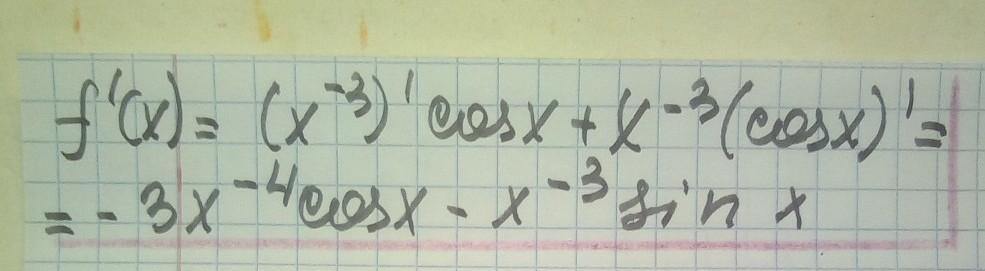 f'(x) = (x⁻³)' cosx + x⁻³(cosx)' =
= - 3x⁻⁴cosx - x⁻³ sin x